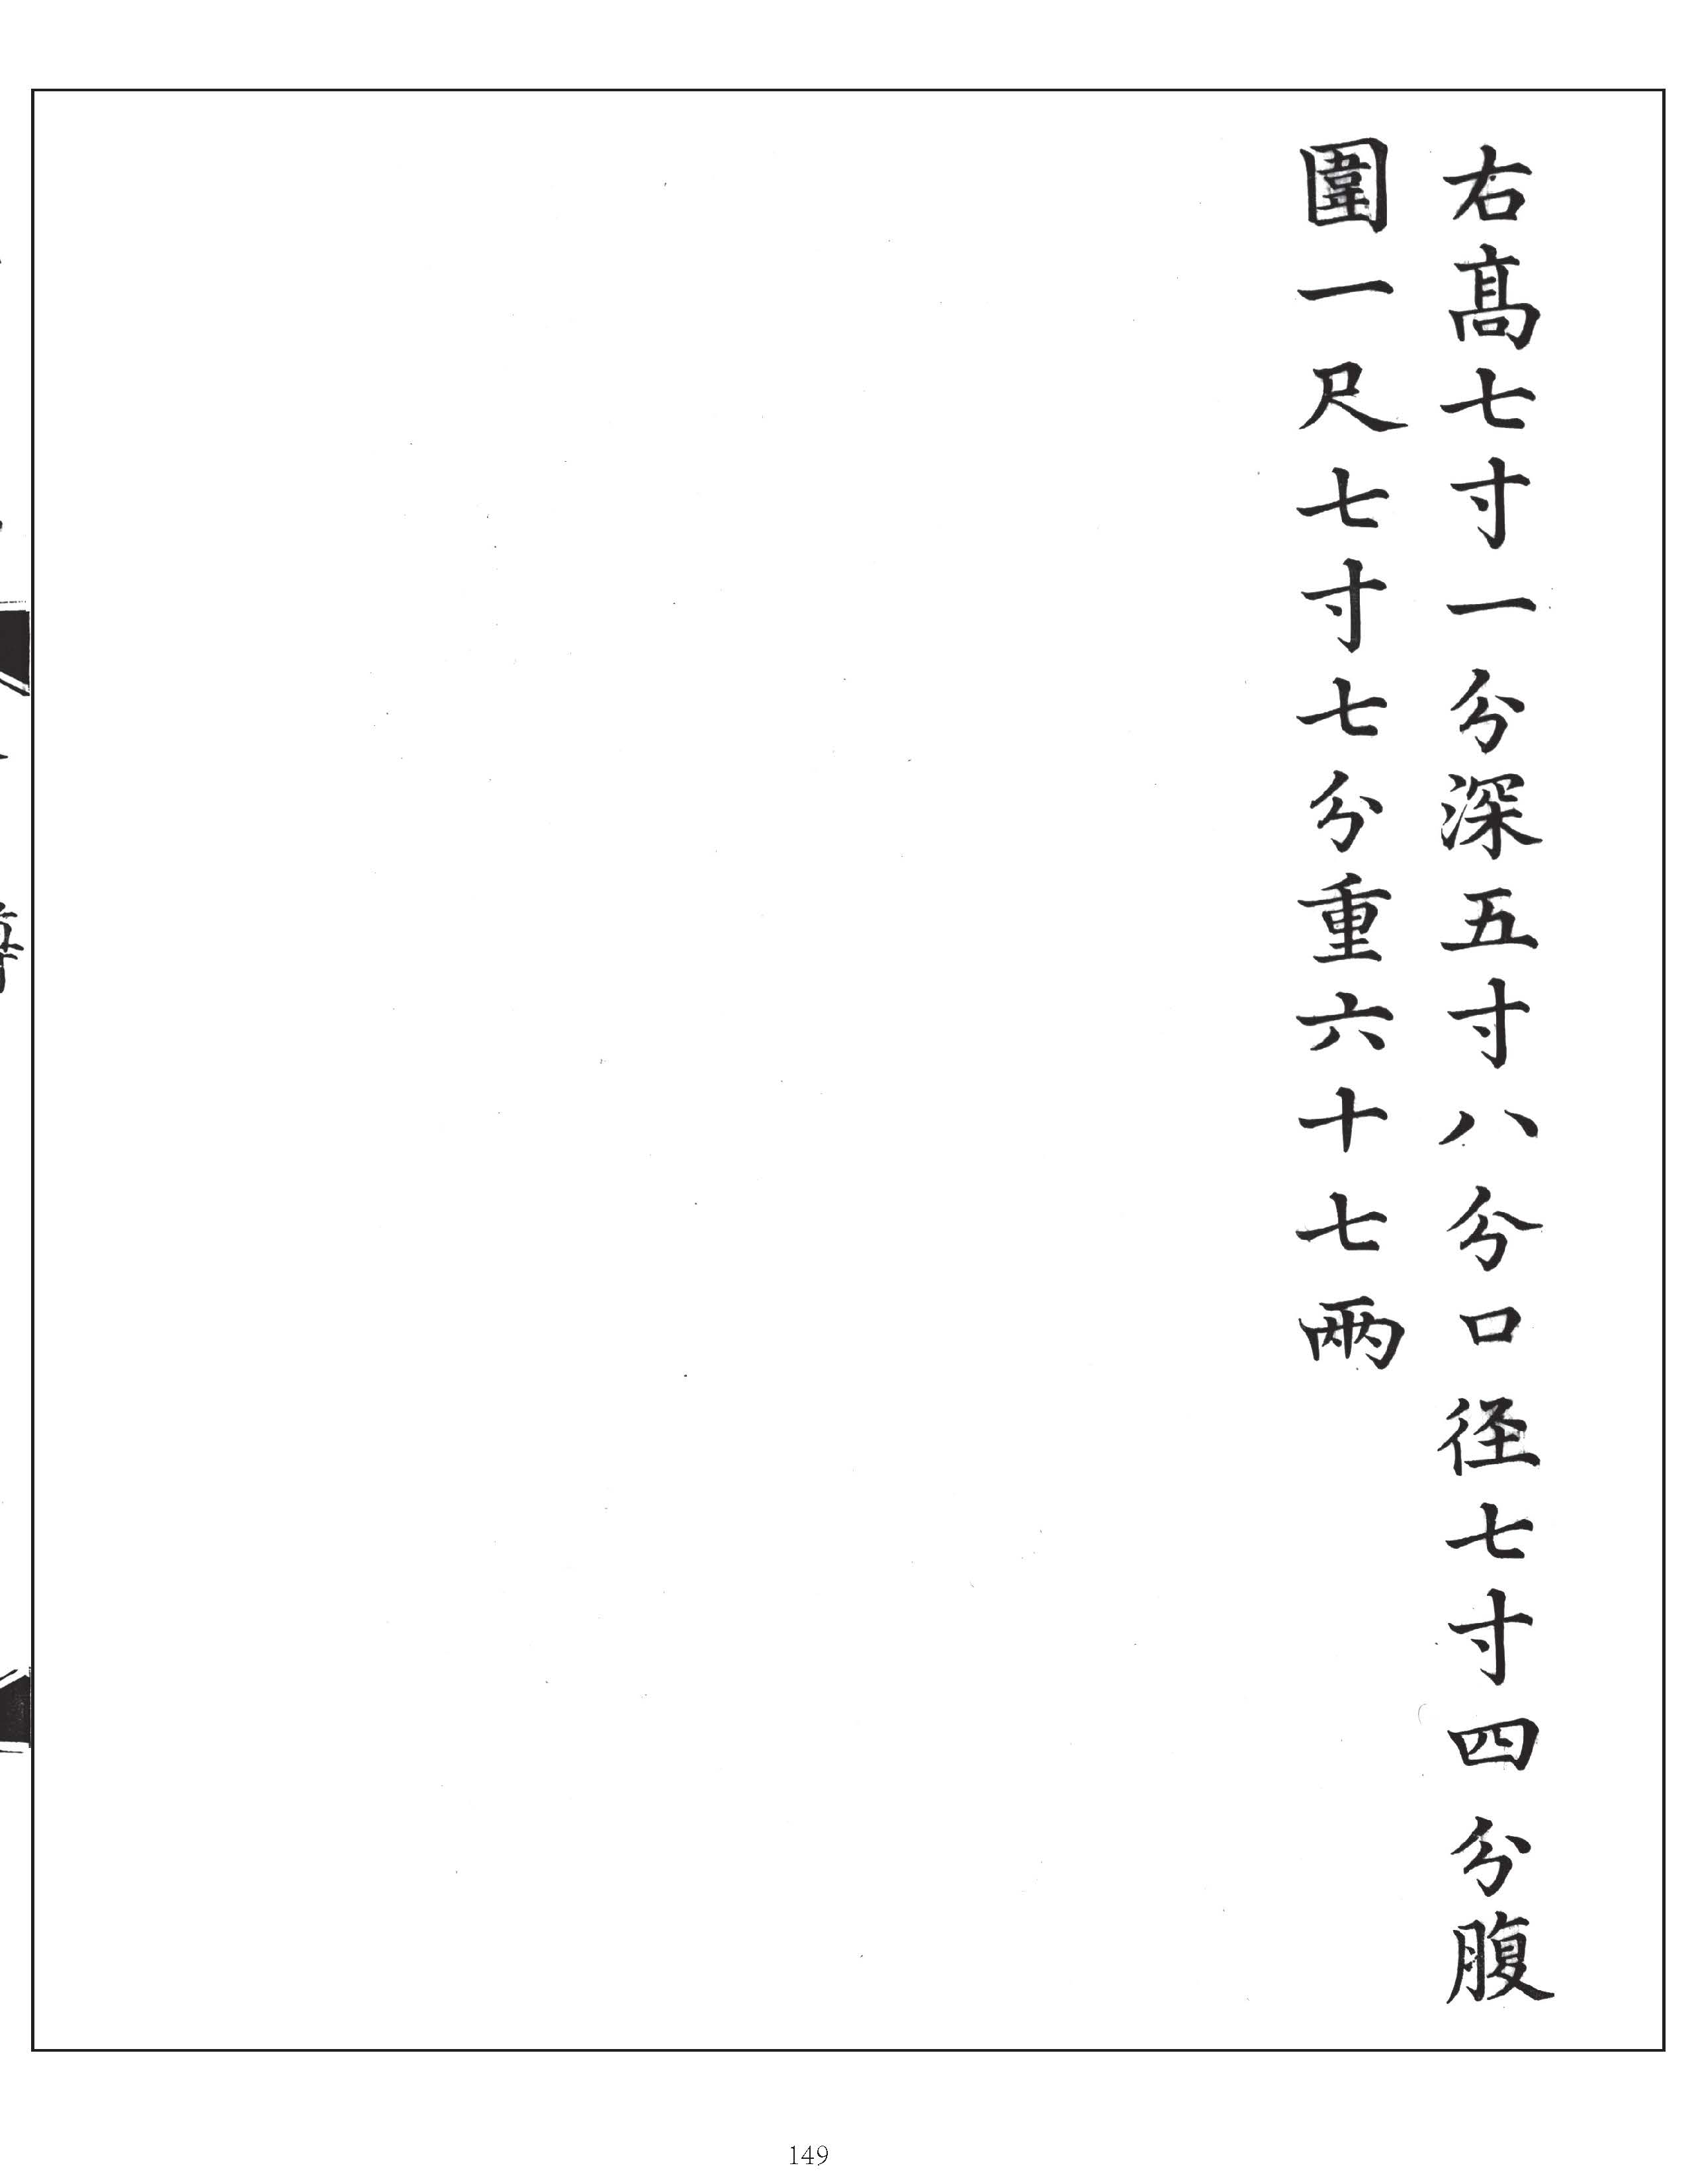 右髙七寸一分深五寸八分口径七寸四分腹
圍一尺七寸七分重六十七兩
149